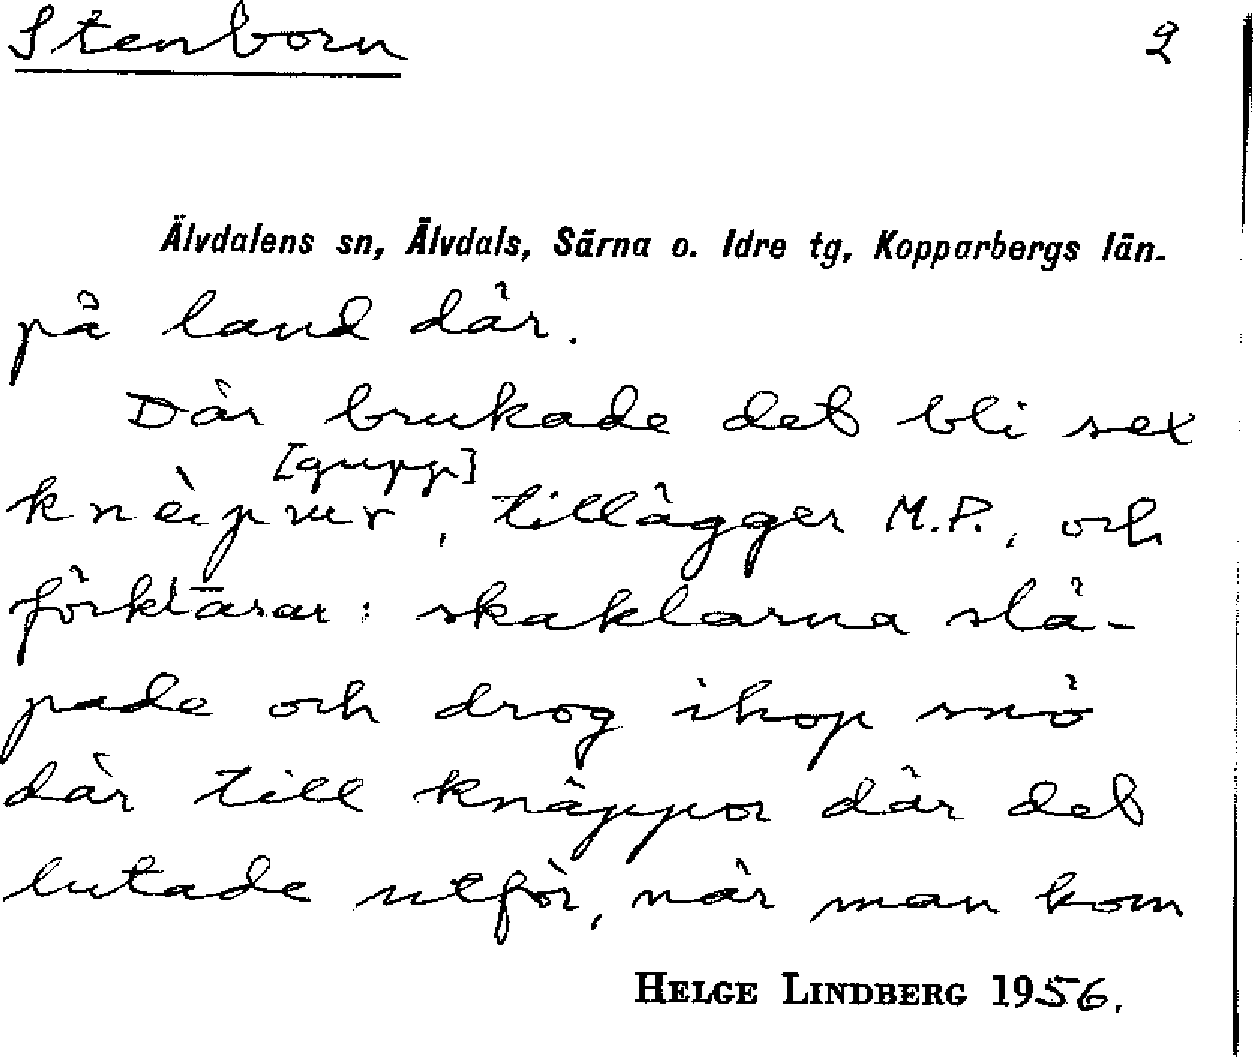 Stenborn 2
Älvdalens sn, Älvdals, Särna o. Idre tg, Kopparbergs län.
på land där.
Där brukade det bli sex
[gupp]
tillägger M.P., och
förklarar: skaklarna slä-
pade och drog ihop snö
där till knäppor där det
lutade utför, när man kom
HELGE LINDBERG 1956.